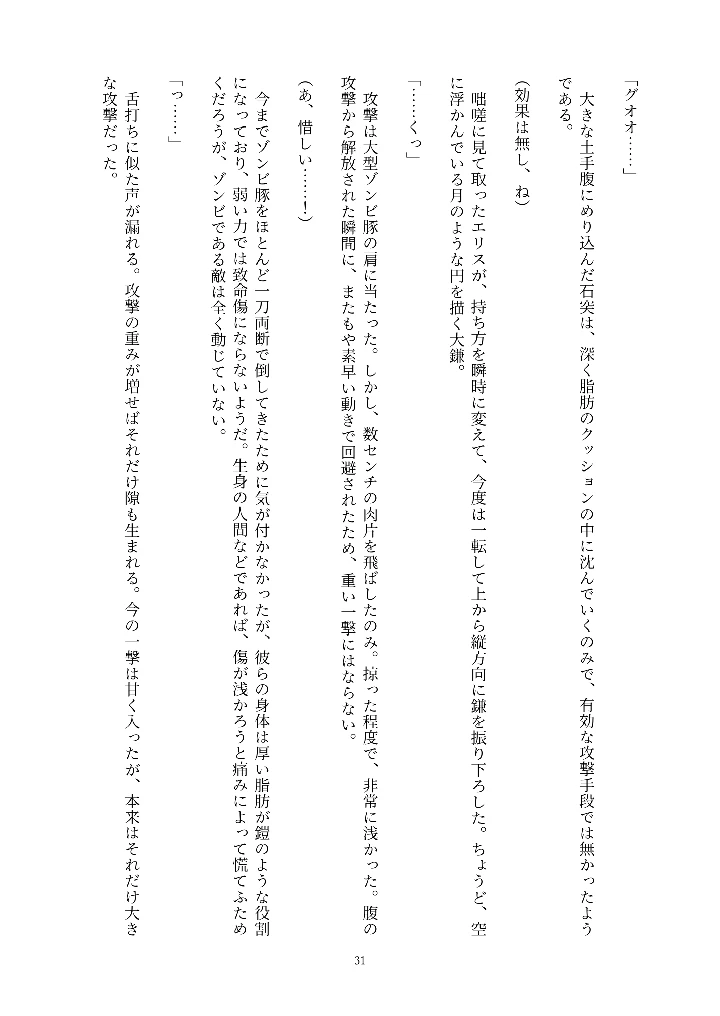 「グオオ……」
大きな土手腹にめり込んだ石突は、深く脂肪のクッションの中に沈んでいくのみで、有効な攻撃手段では無かったよう
である。
(効果は無し、ね)
咄嗟に見て取ったエリスが、持ち方を瞬時に変えて、今度は一転して上から縦方向に鎌を振り下ろした。ちょうど、空
に浮かんでいる月のような円を描く大鎌。
「……くっ」
攻撃は大型ゾンビ豚の肩に当たった。しかし、数センチの肉片を飛ばしたのみ。掠った程度で、非常に浅かった。腹の
攻撃から解放された瞬間に、またもや素早い動きで回避されたため、重い一撃にはならない。
(あ、惜しい……!)
今までゾンビ豚をほとんど一刀両断で倒してきたために気が付かなかったが、彼らの身体は厚い脂肪が鎧のような役割
になっており、弱い力では致命傷にならないようだ。生身の人間などであれば、傷が浅かろうと痛みによって慌てふため
くだろうが、ゾンビである敵は全く動じていない。
「っ……」
舌打ちに似た声が漏れる。攻撃の重みが増せばそれだけ隙も生まれる。今の一撃は甘く入ったが、本来はそれだけ大き
な攻撃だった。
31